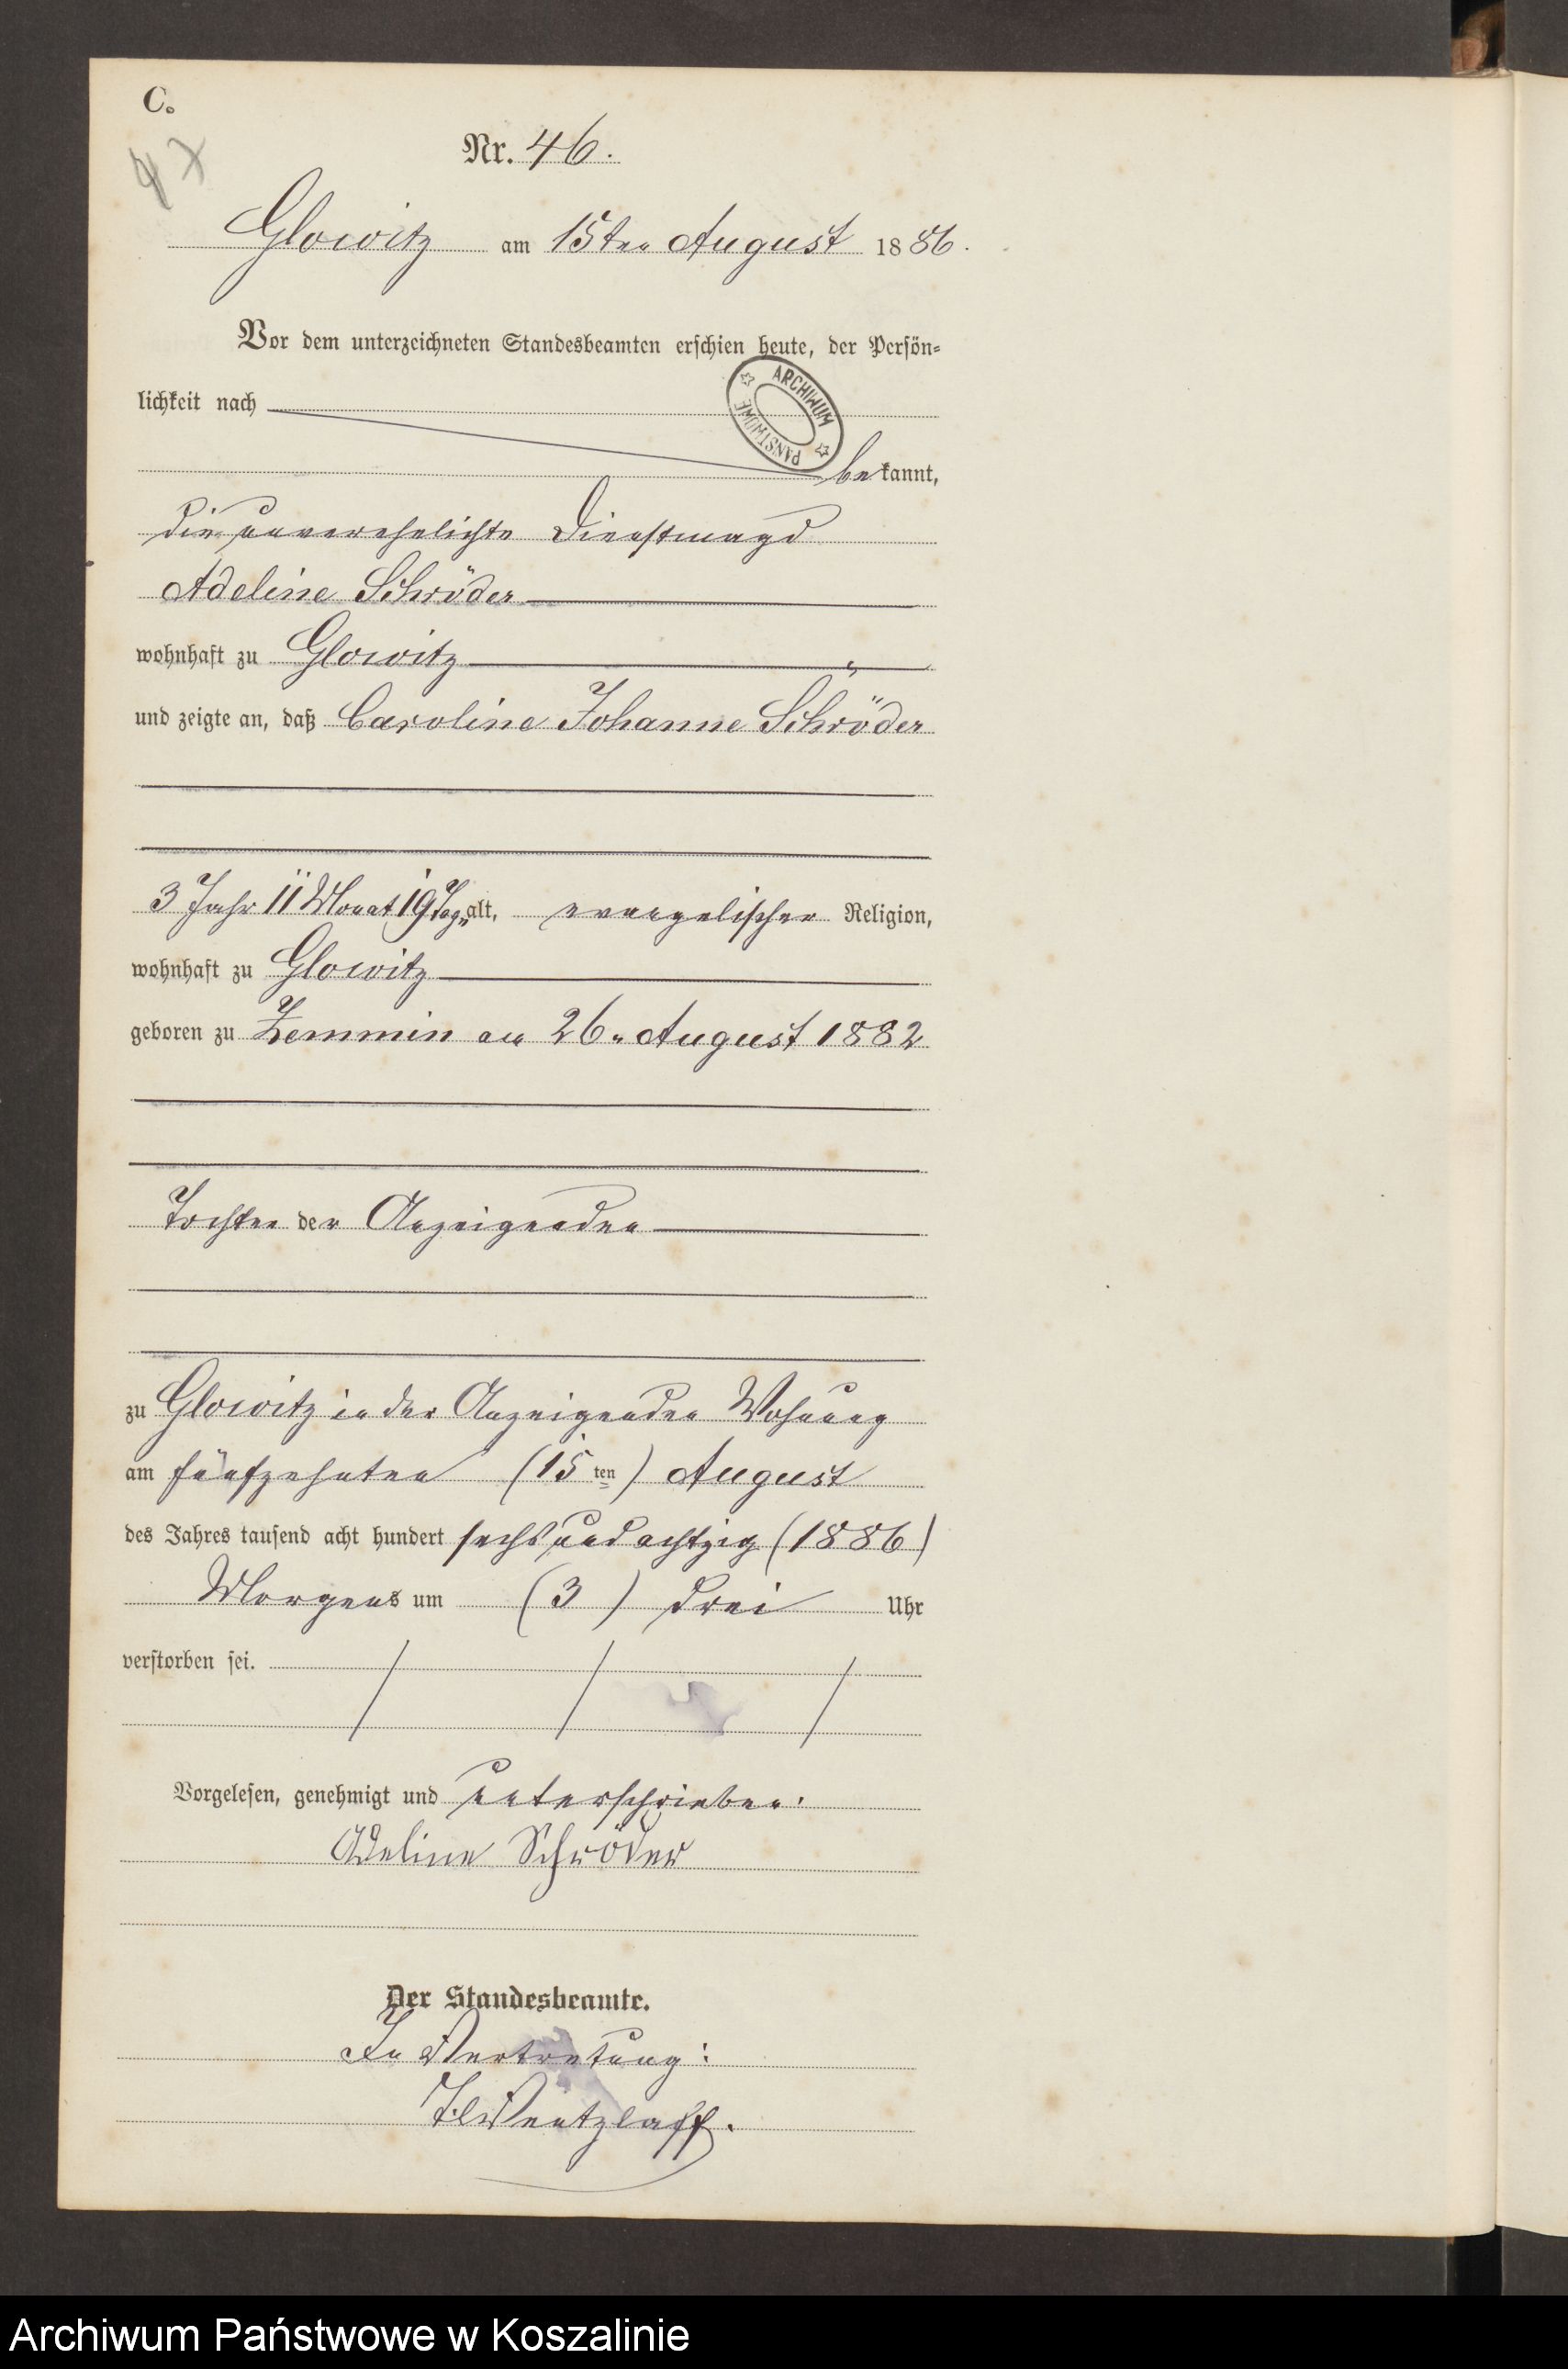 C.
47
Nr. 46.
Glowitz am 15ten August 1886.
Vor dem unterzeichneten Standesbeamten erschien heute, der Persön-
lichkeit nach
ARCHIWUM PAŃSTWOWE
bekannt,
die unverehelichte Dienstmagd
Adeline Schröder
wohnhaft zu Glowitz
und zeigte an, daß Caroline Johanne Schröder
3 Jahr 11 Monat 19 Tag alt, evangelischer Religion,
wohnhaft zu Glowitz
geboren zu Zemmin am 26. August 1882
Tochter der Anzeigenden
zu Glowitz in der Anzeigenden Wohnung
am fünfzehnten (15ten) August
des Jahres tausend acht hundert sechsundachtzig (1886)
Morgens um (3) drei Uhr
verstorben sei.
Vorgelesen, genehmigt und unterschrieben.
Adeline Schröder
Der Standesbeamte.
In Vertretung:
Wentzlaff.
Archiwum Państwowe w Koszalinie